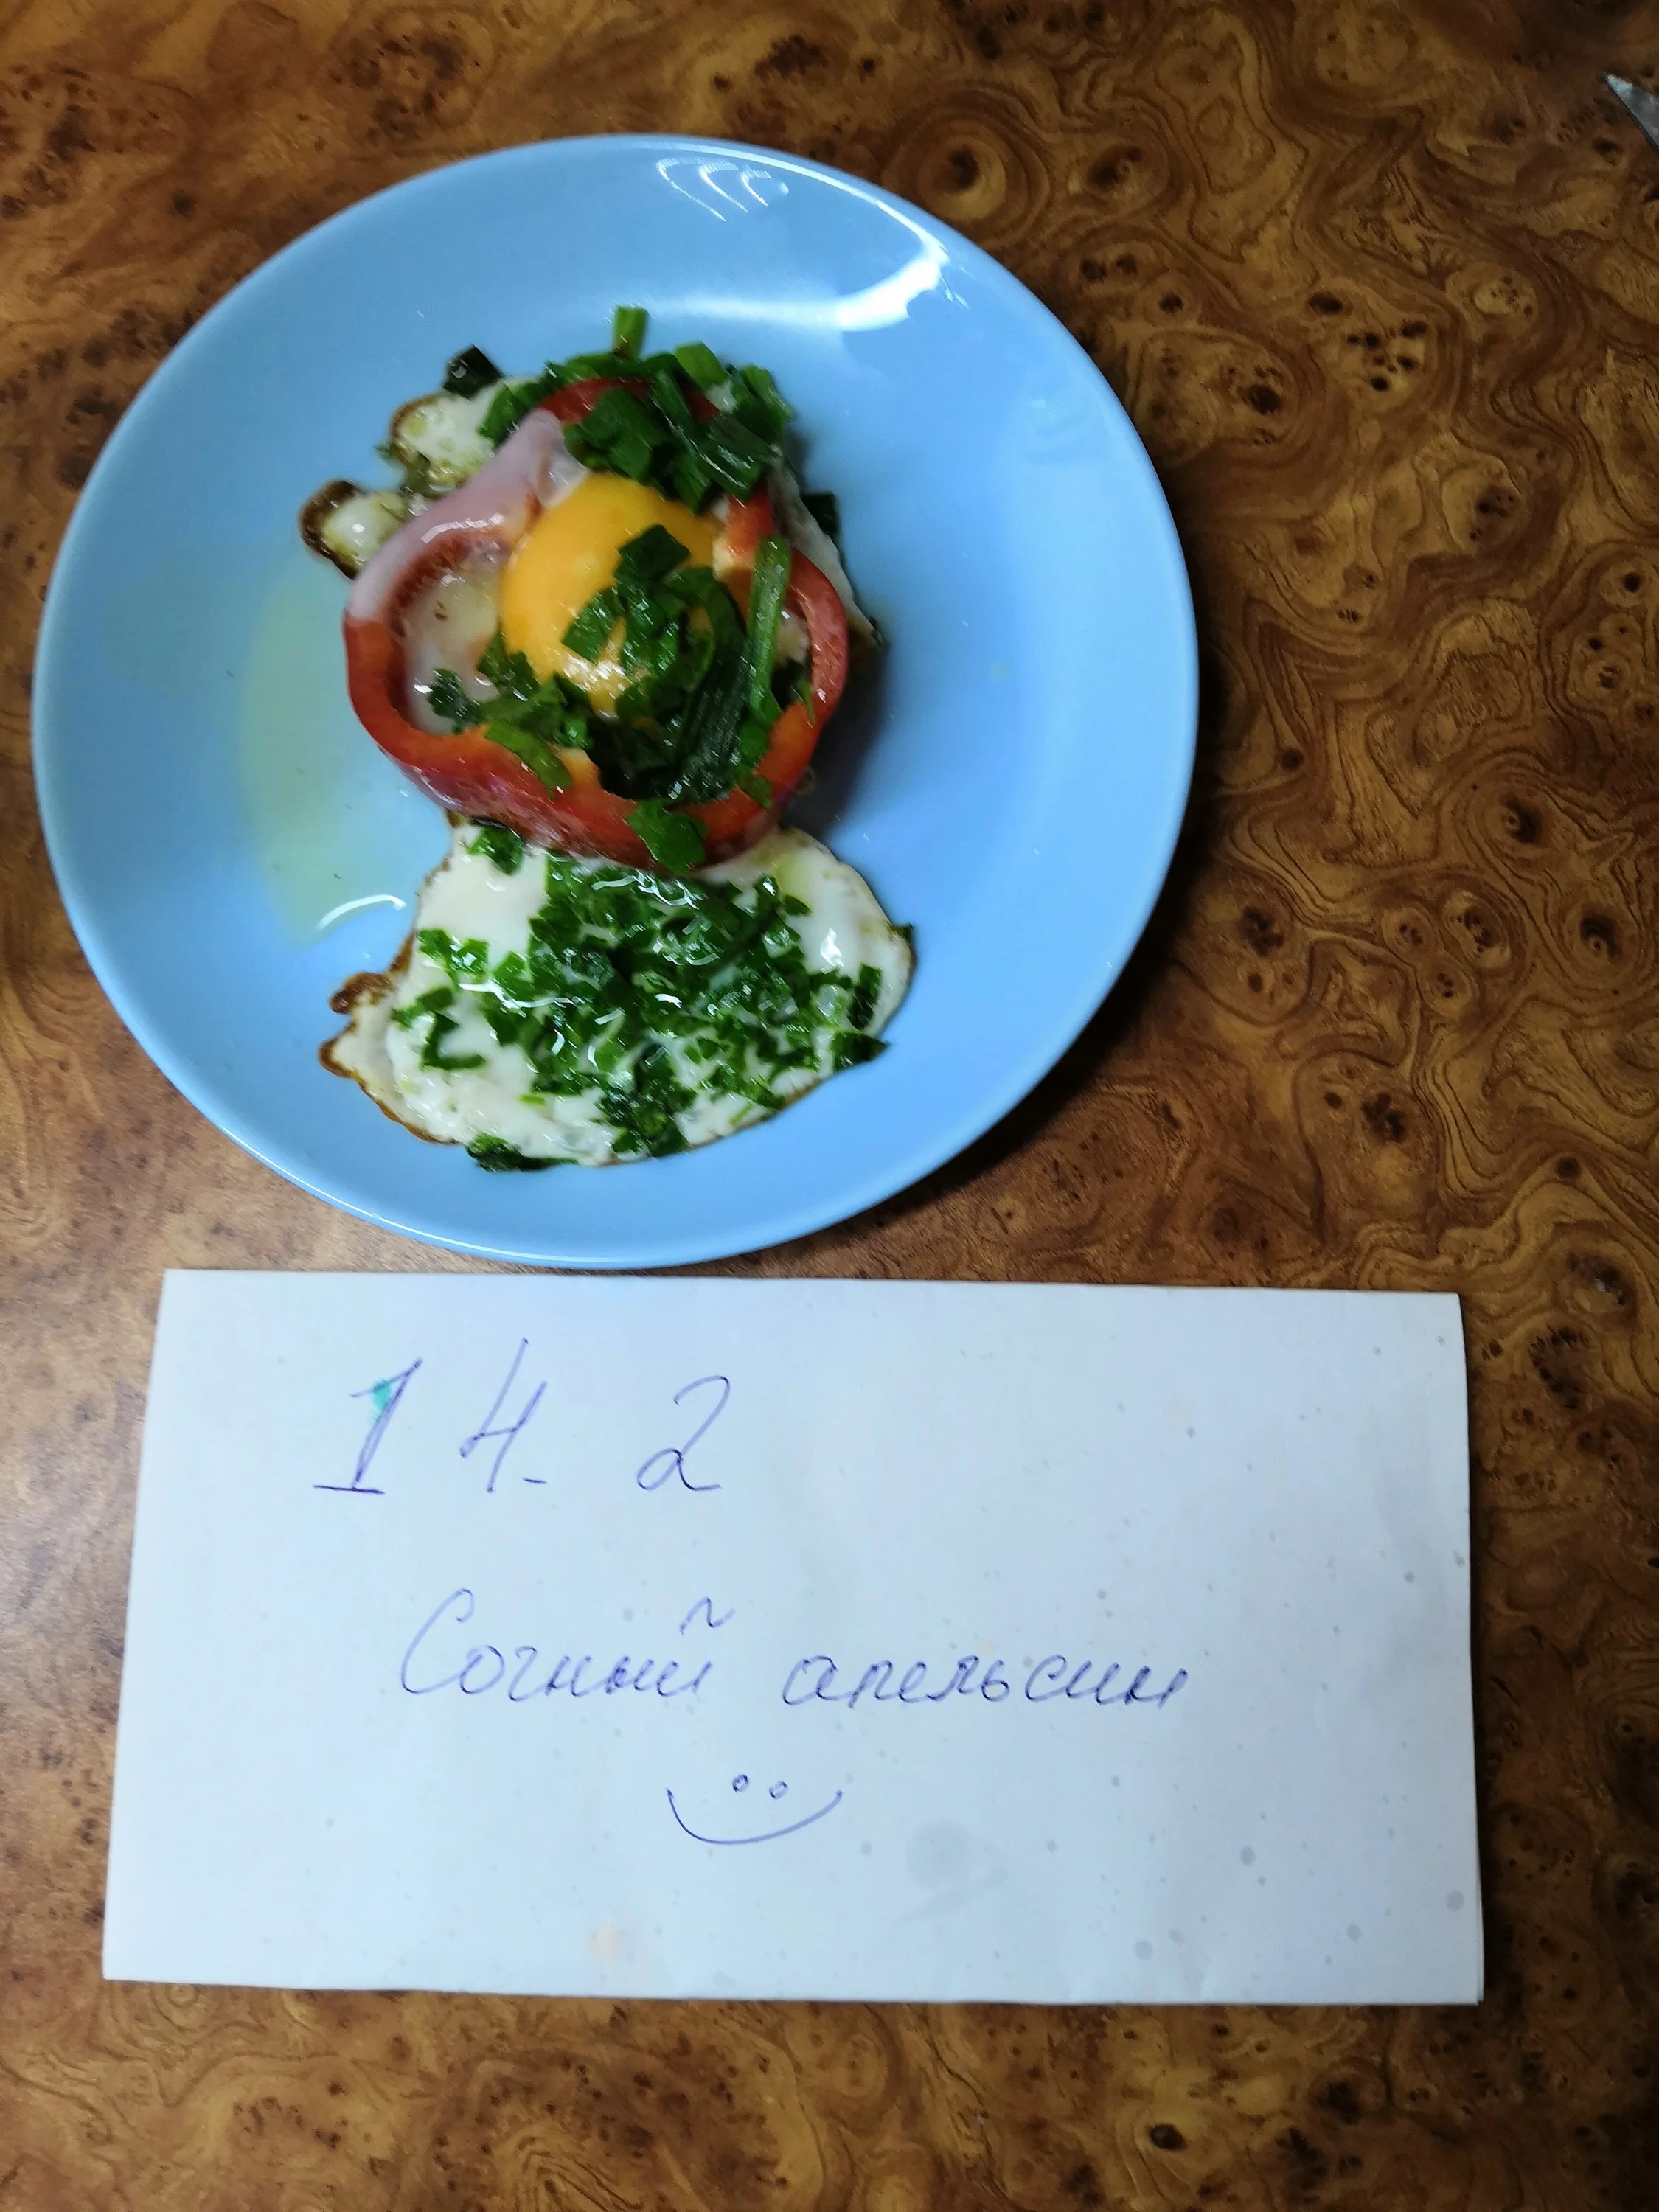 14. 2
Сочный апельсин